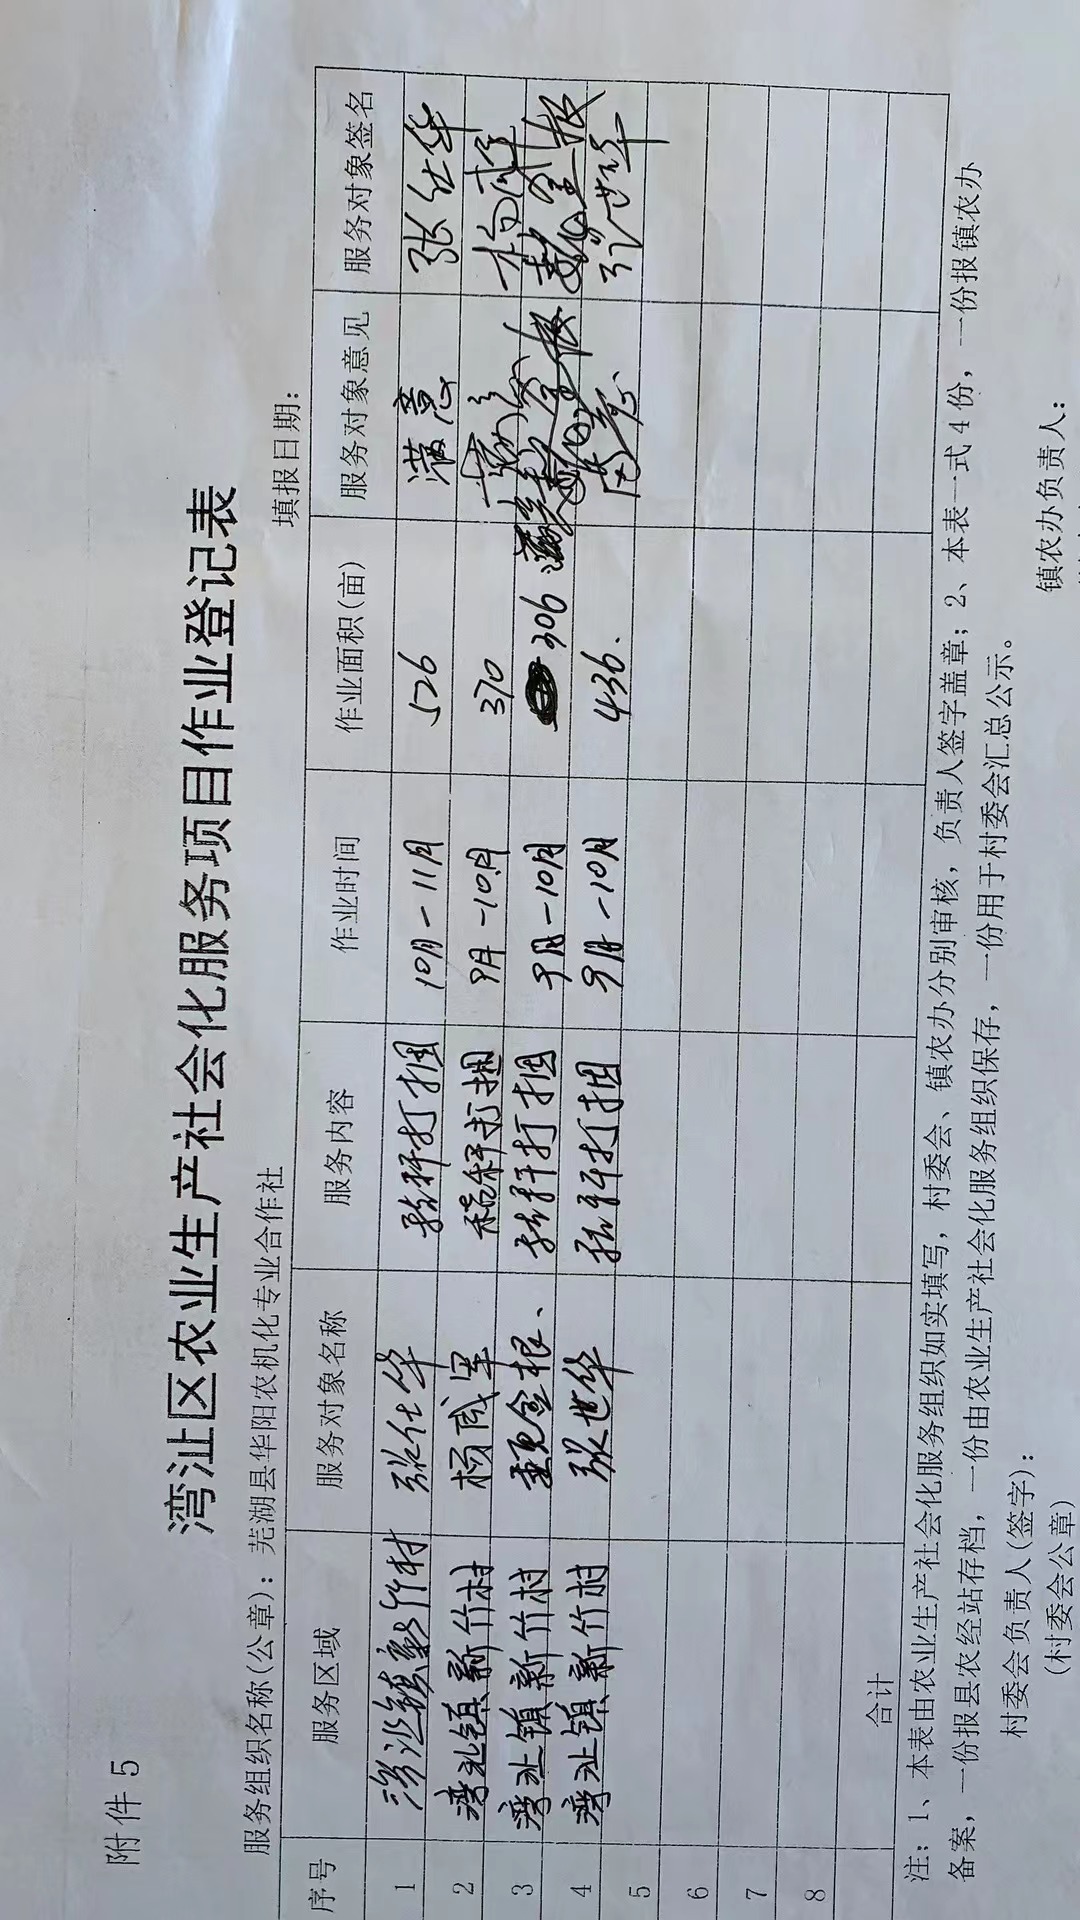 附件 5
湾沚区农业生产社会化服务项目作业登记表
服务组织名称(公章): 芜湖县华阳农机化专业合作社 填报日期:
序号 服务区域 服务对象名称 服务内容 作业时间 作业面积(亩) 服务对象意见 服务对象签名
1 湾沚镇新竹村 张仕华 秸秆打捆 10月-11月 526 满意 张仕华
2 湾沚镇新竹村 杨咸军 秸秆打捆 9月-10月 370
3 湾沚镇新竹村 金根、 秸秆打捆 9月-10月 306
4 湾沚镇新竹村 张世华 秸秆打捆 9月-10月 436. 满意 张世华
5
6
7
8
合计
注: 1、本表由农业生产社会化服务组织如实填写,村委会、镇农办分别审核,负责人签字盖章; 2、本表一式4份,一份报镇农办
备案,一份报县农经站存档,一份由农业生产社会化服务组织保存,一份用于村委会汇总公示。
村委会负责人(签字): 镇农办负责人:
(村委会公章)